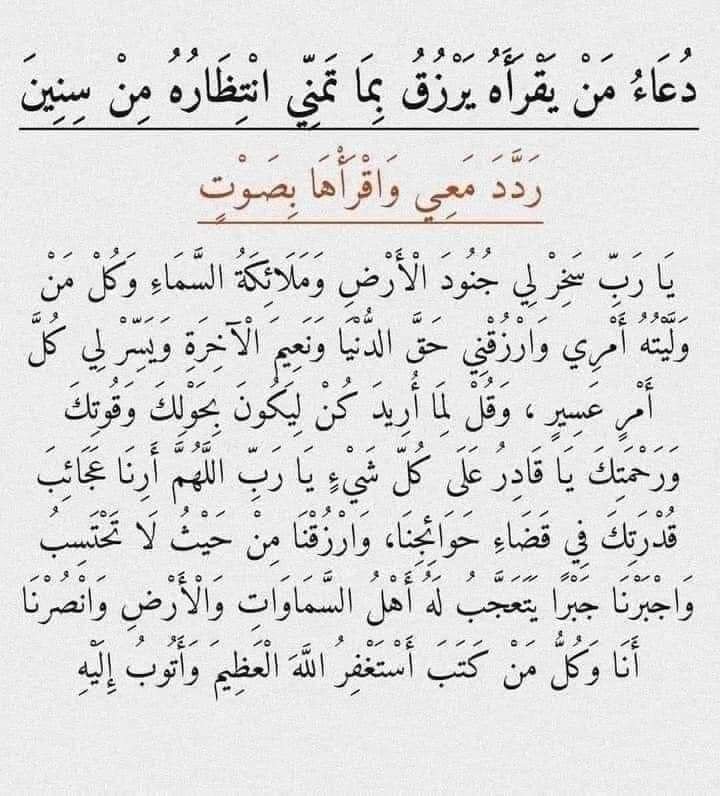 دُعَاءُ مَنْ يَقْرَأَهُ يَرْزُقُ بِمَا تَمَنِّي انْتِظَارُهُ مِنْ سِنِينَ
رَدَّدَ مَعِي وَاقْرَأْهَا بِصَوْتٍ
يَا رَبِّ سَخِرْ لِي جُنُودَ الْأَرْضِ وَمَلَائِكَةُ السَّمَاءِ وَكُلْ مَنْ
وَلَّيْتُهُ أَمْرِي وَارْزُقْنِي حَقَّ الدُّنْيَا وَنَعِيمَ الْآخِرَةِ وَيَسِّرْ لِي كُلَّ
أَمْرٍ عَسِيرٍ ، وَقُلْ لِمَا أُرِيدَ كُنْ لِيَكُونَ بِحَوْلِكَ وَقُوتِكَ
وَرَحْمَتِكَ يَا قَادِرُ عَلَى كُلِّ شَيْءٍ يَا رَبِّ اللَّهُمَّ أَرِنَا عَجَائِبَ
قُدْرَتِكَ فِي قَضَاءِ حَوَائِجِنَا، وَارْزُقْنَا مِنْ حَيْثُ لَا تَحْتَسِبُ
وَاجْبَرْنَا جَبْرًا يَتَعَجَّبُ لَهُ أَهْلُ السَّمَاوَاتِ وَالْأَرْضِ وَانْصُرْنَا
أَنَا وَكُلُّ مَنْ كَتَبَ أَسْتَغْفِرُ اللَّهَ الْعَظِيمَ وَأَتُوبُ إِلَيْهِ